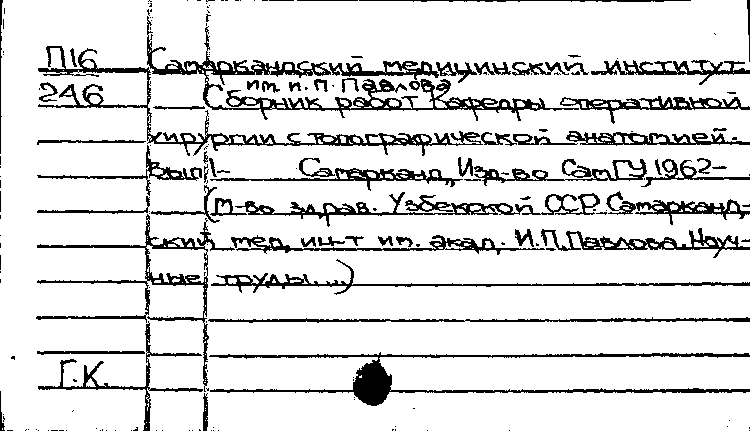 П16 Самаркандский медицинский институт
им. И. П. Павлова
246 Сборник работ кафедры оперативной
хирургии с топографической анатомией.
Вып 1- Самарканд, Изд-во СамГУ, 1962-
(М-во здрав. Узбекской ССР. Самарканд-
ский мед. ин-т им. акад. И.П. Павлова. Науч-
ные труды....)
Г.К.